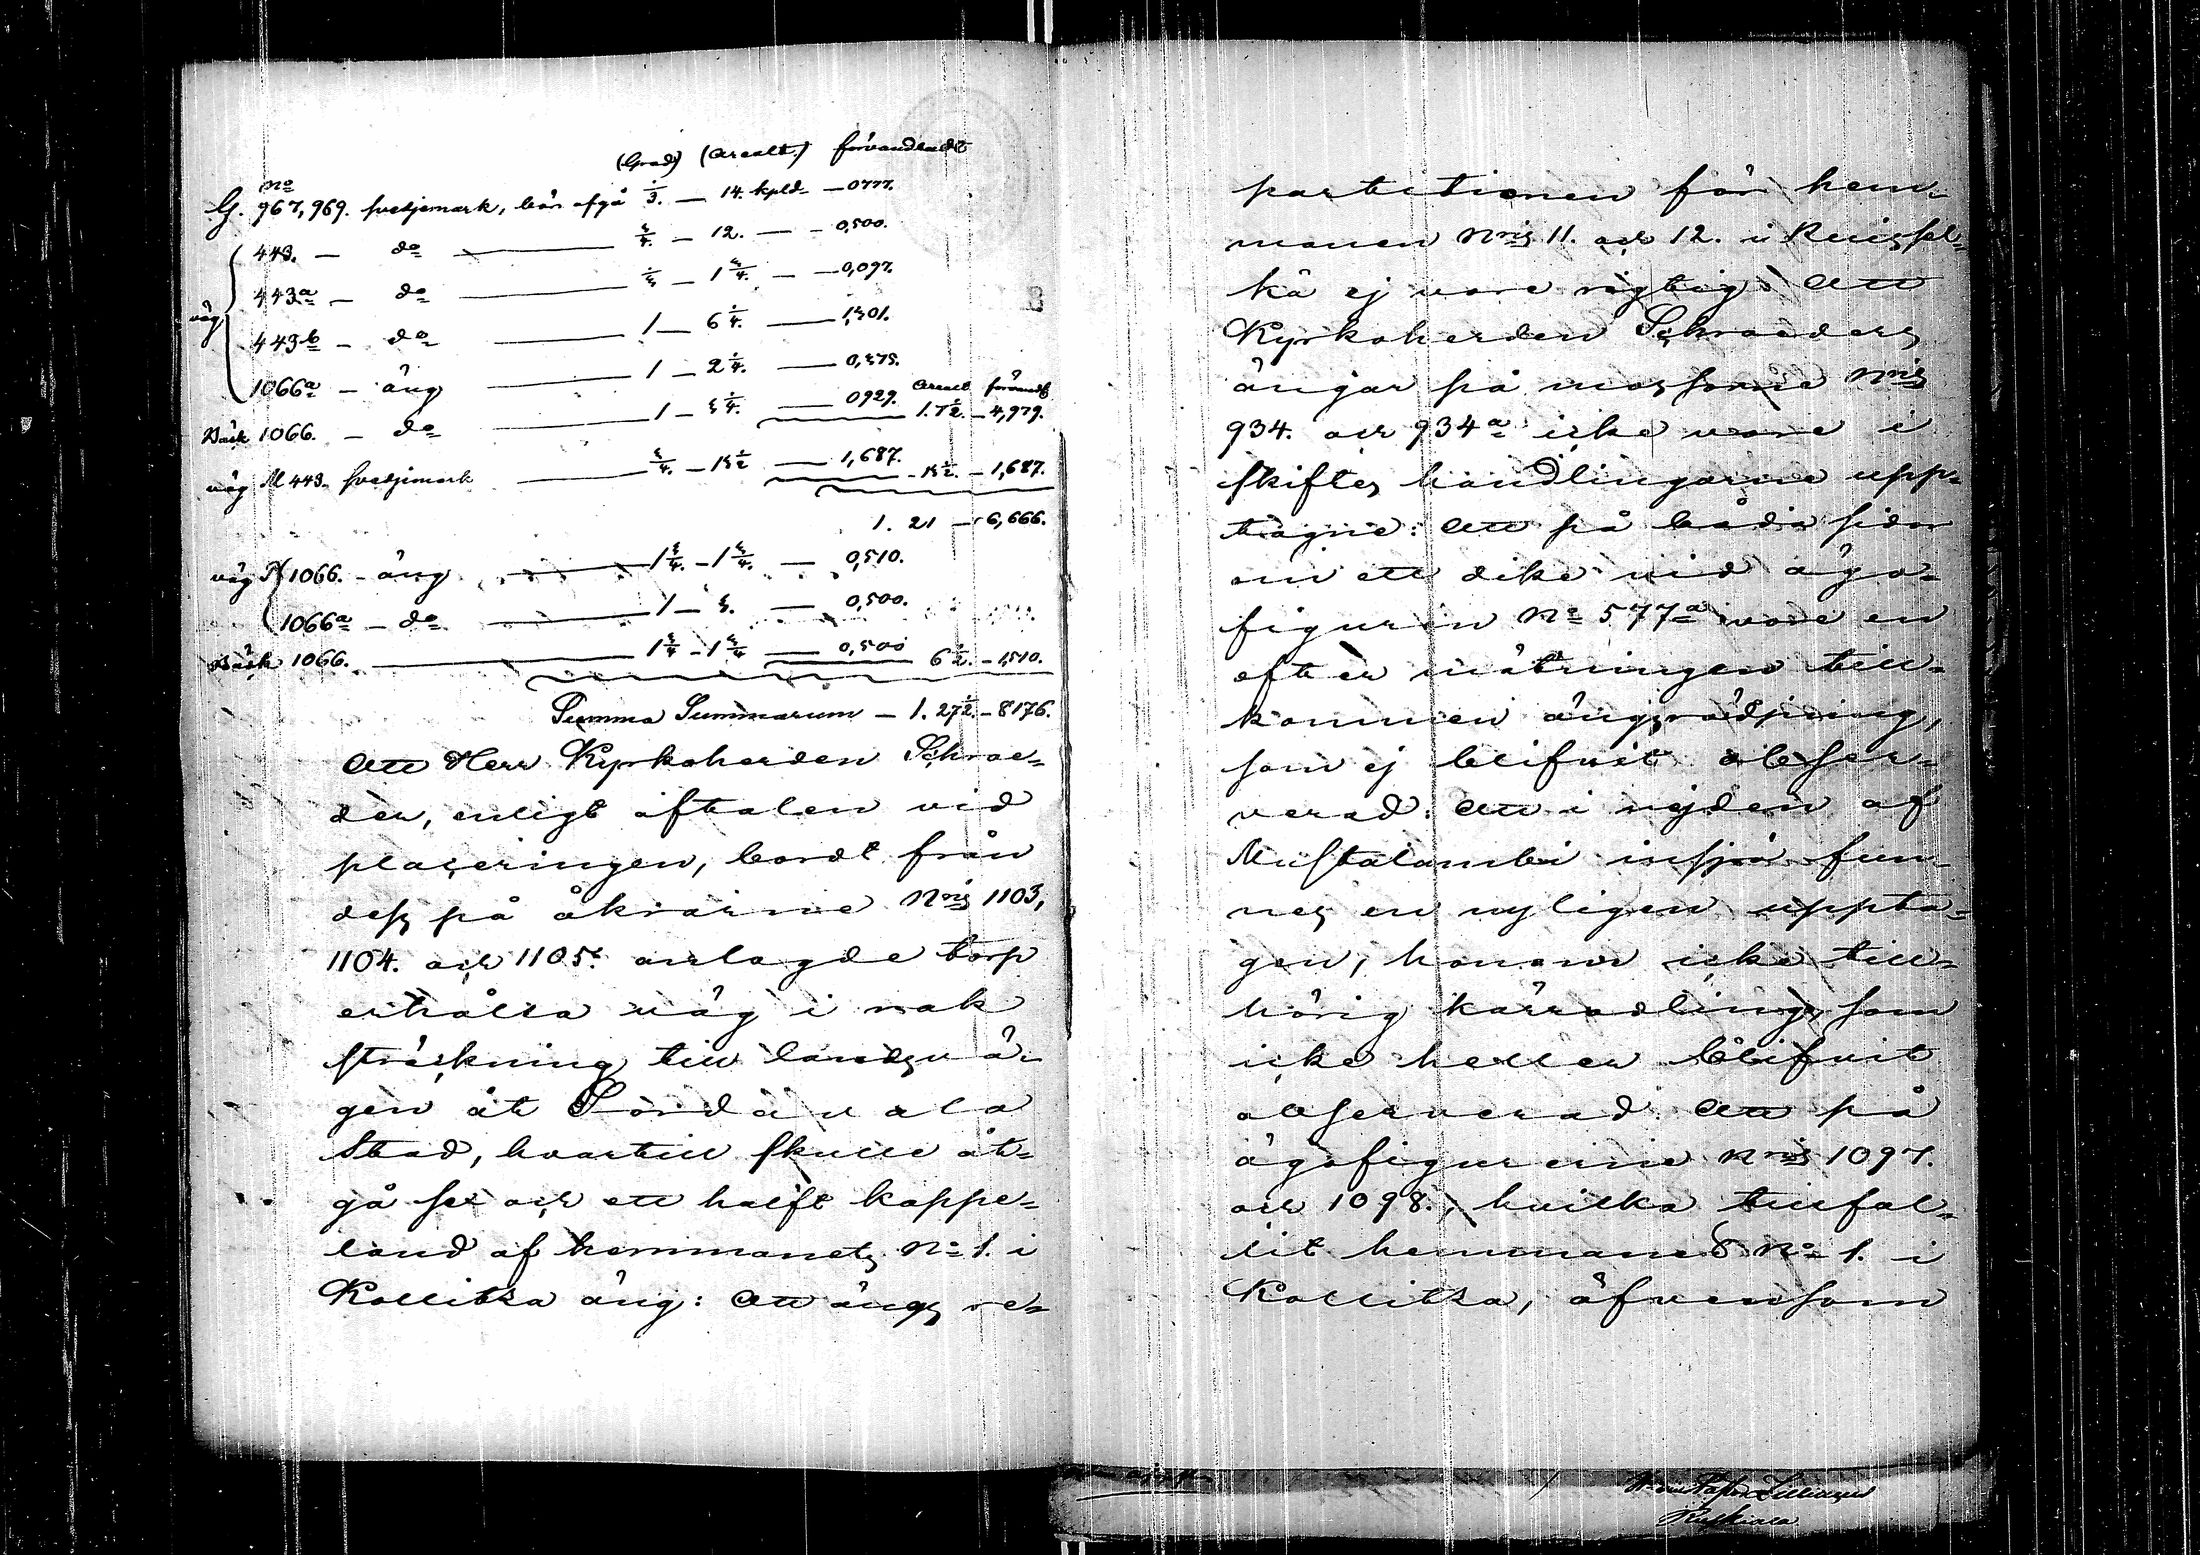 (Grad) (Arealt.) förvandladt
No
G. 967, 969. svedjemark, bör afgå 1/3. — 14. kpld — 0777.
443. — do — 3/4. — 12. — 0,500.
443a — do — 1 3/4. — 0,097.
väg
443b — do — 1 — 6 1/4. — 1,301.
1066a — äng — 1 — 2 1/4. — 0,375.
Arealt förvandl
Bäck 1066. — do — 1 — 3 1/4. — 0929. 1. 7 1/2. — 4,979.
väg M 443. svedjemark — 3/4. — 13 1/2 — 1,687. 13 1/2. — 1,687.
1. 21 — 6,666.
väg P 1066. — äng — 1 3/4. — 1 3/4. — 0,510.
1066a — do — 1 — 3. — 0,500.
Bäck 1066. — 1 3/4 — 1 3/4 — 0,500 6 1/2. — 1,510.
Summa Summarum — 1. 27 1/2. — 8176.
Att Herr Kyrkoherden Schroe=
der, enligt aftalen vid
placeringen, bordt från
dess på åkrarne Nris 1103,
1104. och 1105. anlagde torp
erhålla väg i rak
sträckning till landsvä=
gen åt Sordavala
Stad, hvartill skulle åt=
gå sex och ett halft kappe=
land af hemmanets No 1. i
Kollitka äng: Att ängs re=
partitionen för hem=
manen Nris 11. och 12. i Ruispel=
kä ej vore rigtig: Att
Kyrkoherden Schroeders
ängar på mossarne Nris
934. och 934a icke vore i
skiftes handlingarne upp=
tagne: Att på båda sidor
om ett dike vid ägo=
figuren No 577a vore en
efter mätningen till=
kommen ängsrödjning,
som ej blifvit obser=
verad: Att i nejden af
Mustalambi insjö fun=
nes en nyligen uppta=
gen, honom icke till=
hörig kärrodling, som
icke heller blifvit
observerad: Att på
ägofigurerne Nris 1097.
och 1098., hvilka tillfal=
lit hemmanet No 1. i
Kollitka, äfvensom